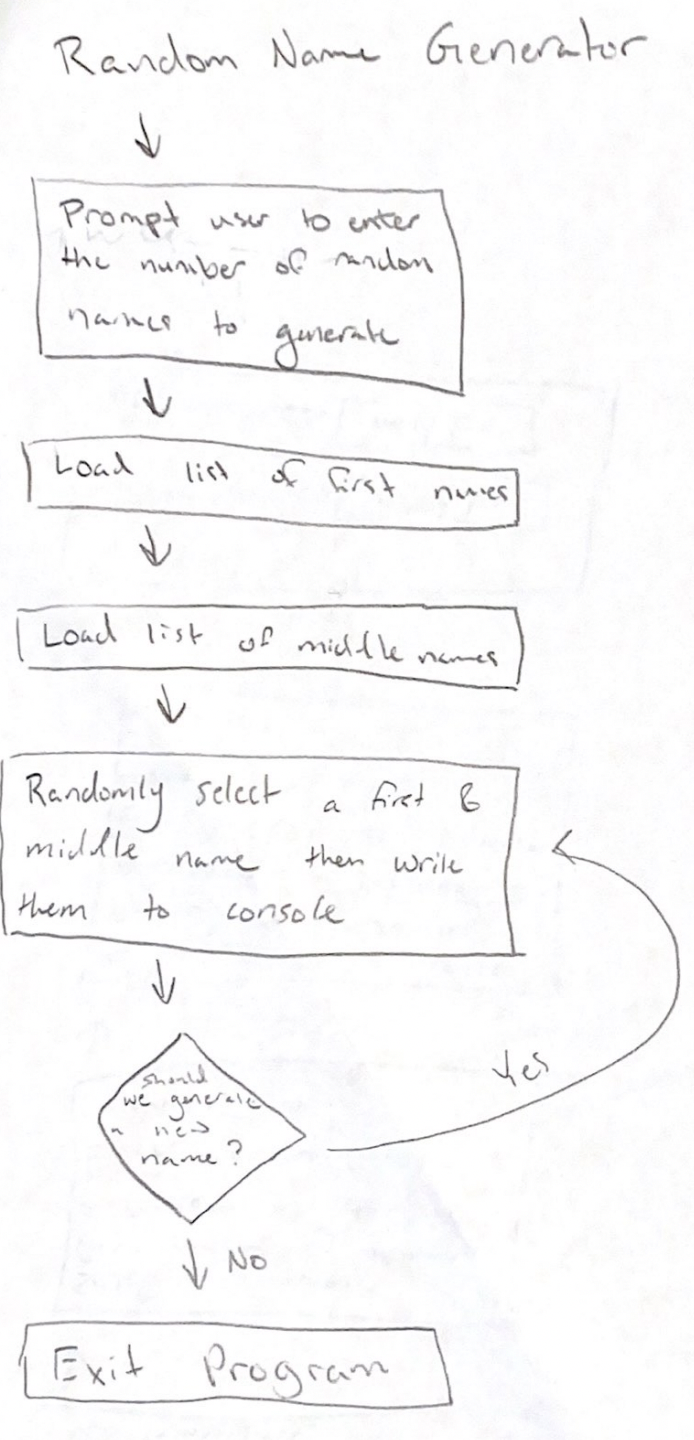 Random Name Generator
Prompt user to enter
the number of random
names to generate
Load list of first names
Load list of middle names
Randomly select a first &
middle name then write
them to console
should
we generate
a new
name?
Yes
No
Exit Program